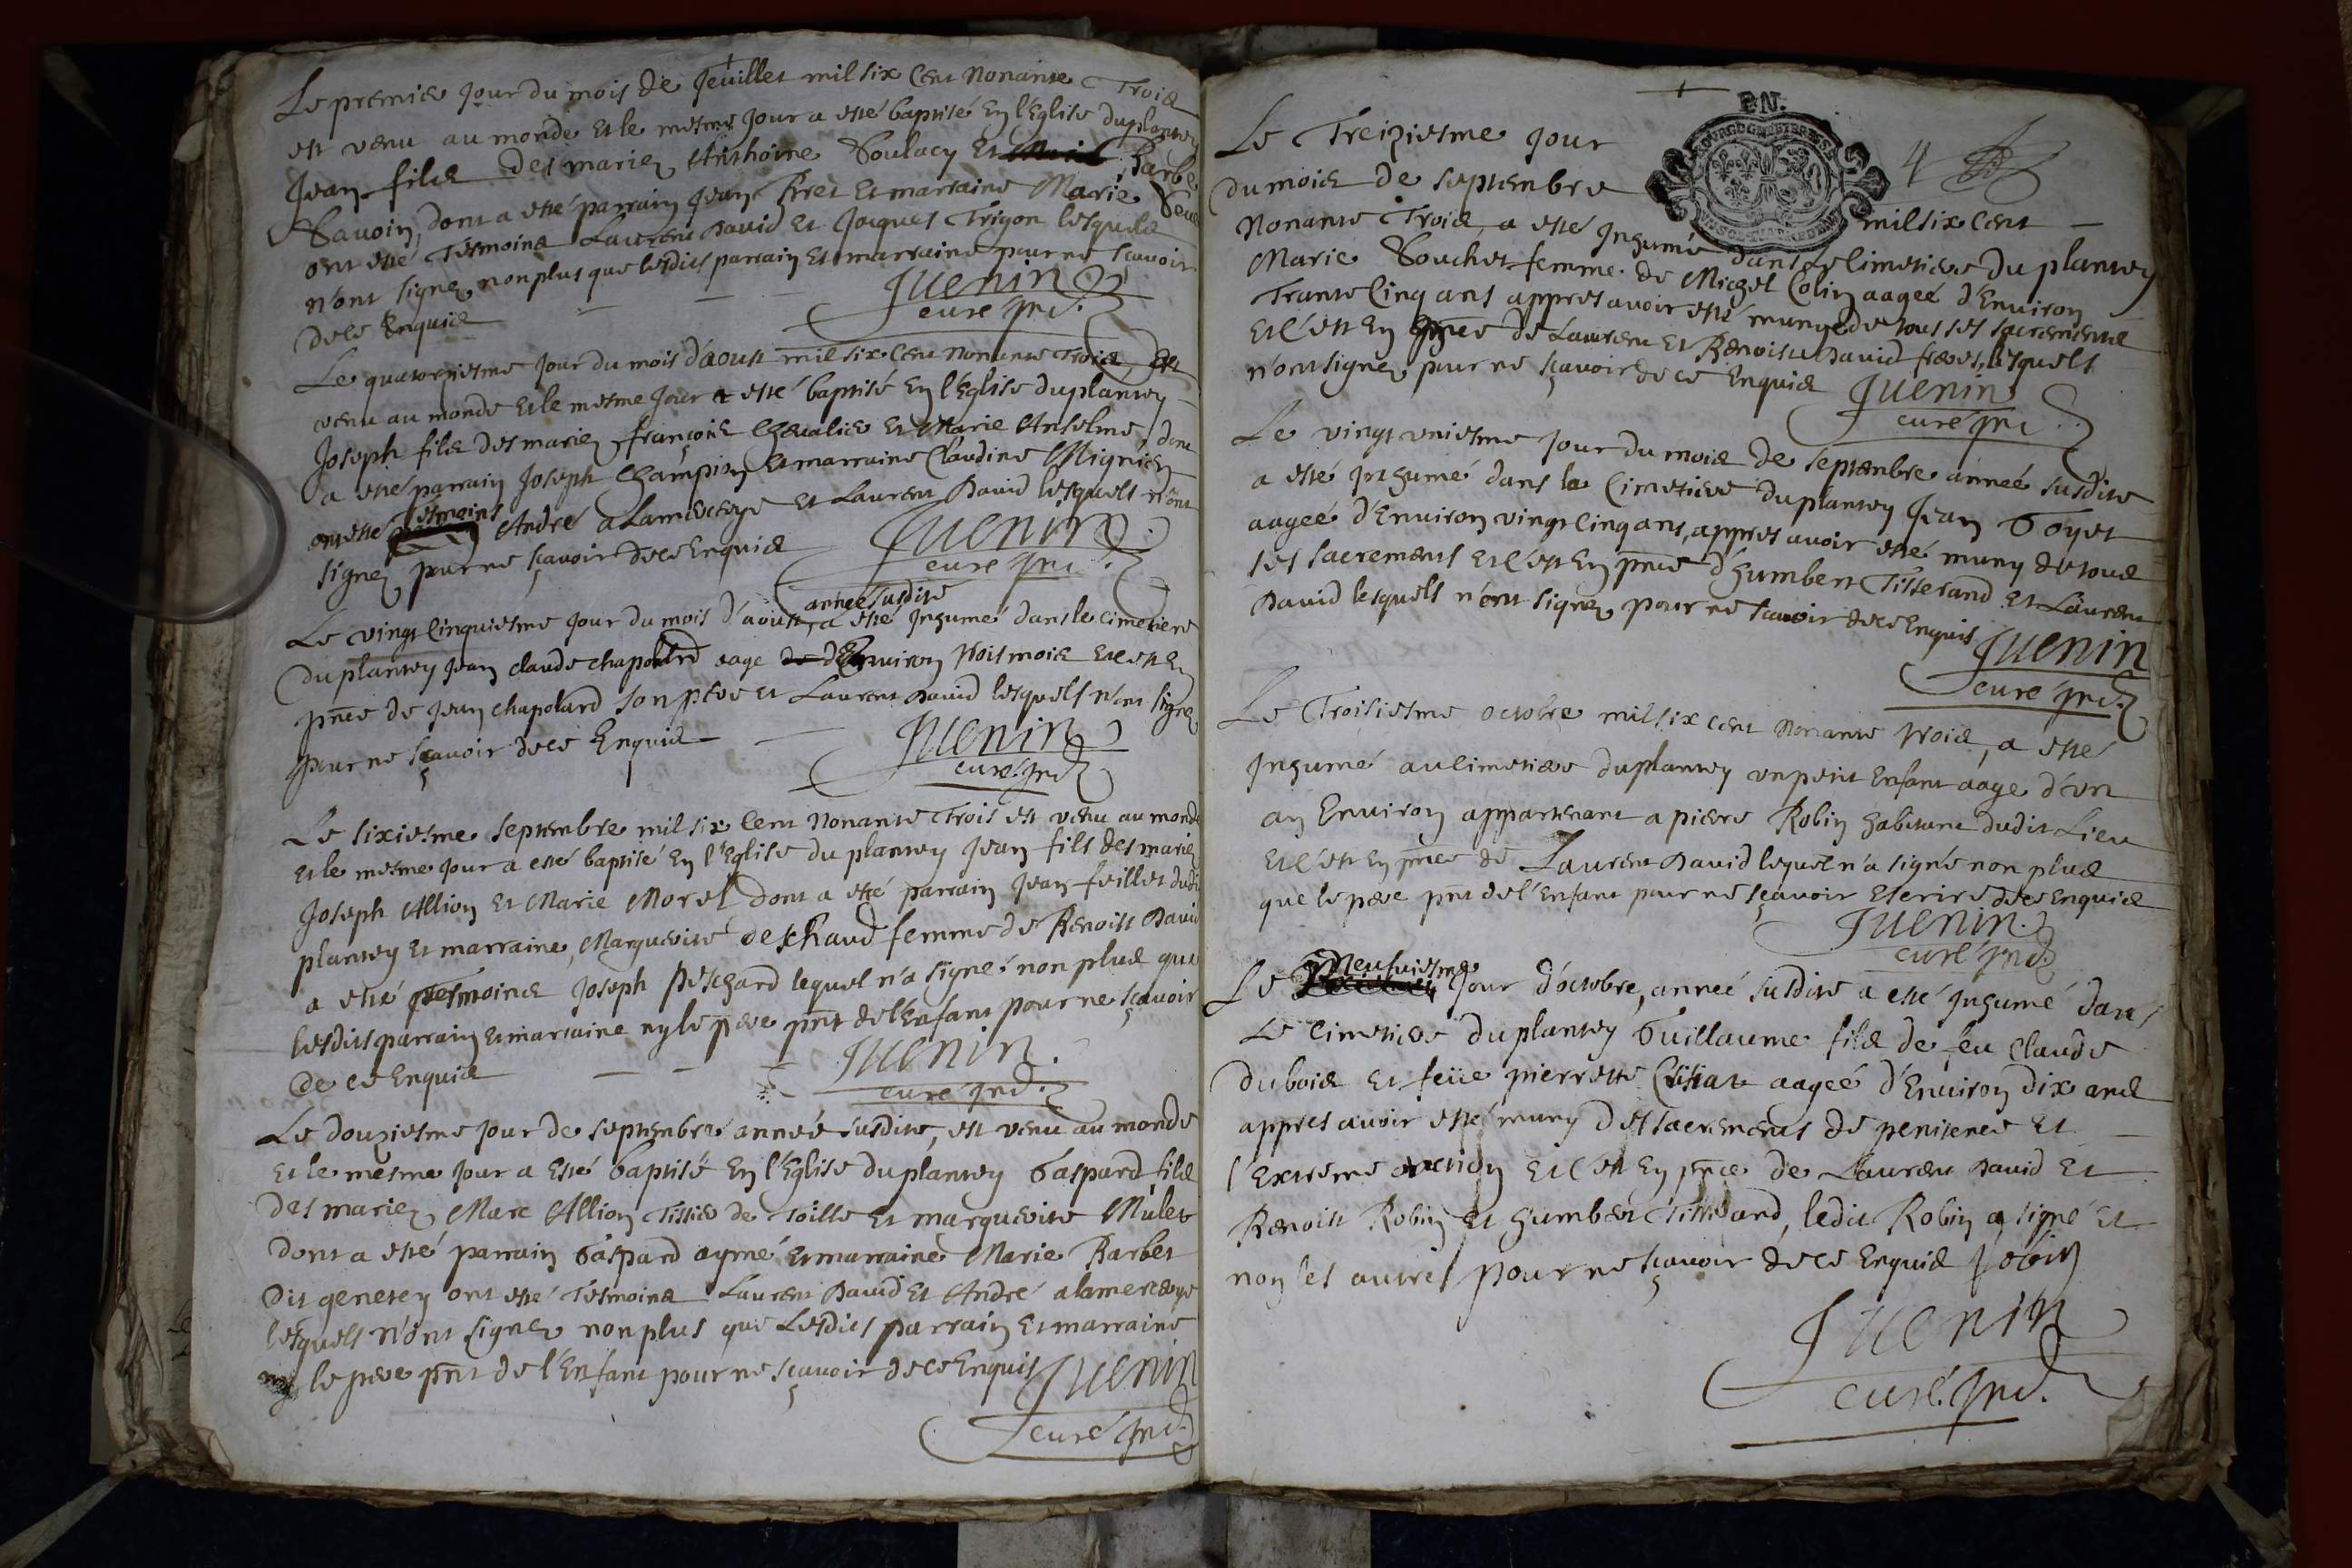 Le premier jour du mois de Jeuillet mil six Cent nonante Trois
est venu au monde et le mesme jour a esté baptisé en l'Eglise du plantey
Jean fils des mariez Anthoine Boulacy et Barbe
Bavoin, dont a esté parrain Jean et marraine Marie
ont esté Tesmoins Laurent David et Jacques Trigon lesquels
n'ont signez non plus que lesdits parrain et marraine pour ne sçavoir
de ce Enquis
Juenin
curé
Le quatorziesme jour du mois d'aoust mil six Cent nonante Trois, est
venu au monde et le mesme Jour a esté baptisé en l'Eglise du plantey
Joseph fils des mariez françois Chevalier et Marie Anselme, dont
a esté parrain Joseph Champion et marraine Claudine Mignien
ont esté Tesmoins André alamercerye et Laurent David lesquels n'ont
signez pour ne sçavoir de ce Enquis
Juenin
curé
Le vingt Cinquiesme jour du mois d'aoust, année susdite a esté Inhumé dans le cimetiere
du plantey Jean claude chapolard aage d'Environ trois mois et c'est en
pnce de Jean chapolard son pere et Laurent David lesquels n'ont signez
pour ne sçavoir de ce Enquis
Juenin
curé
Le sixiesme septembre mil six Cent nonante Trois est venu au monde
et le mesme jour a esté baptisé en l'Eglise du plantey Jean fils des mariez
Joseph Allion et Marie Morel dont a esté parrain Jean feillet dudit
plantey et marraine, Marguerite deschaud femme de Benoist David
a esté Tesmoins Joseph peschard lequel n'a signé non plus que
lesdits parrain et marraine ny le pere pnt de l'Enfant pour ne sçavoir
de ce Enquis
Juenin
curé
Le douziesme jour de septembre année susdite, est venu au monde
et le mesme jour a esté baptisé en l'Eglise du plantey Gaspard fils
des mariez Marc Allion Tissier de Toille et marguerite Mulet
dont a esté parrain Gaspard aymé et marraine Marie Barbet
dit genetey ont esté Tesmoins Laurent David et André alamercerye
lesquels n'ont signez non plus que Lesdits parrain et marraine
ny le pere pnt de l'Enfant pour ne sçavoir de ce Enquis Juenin
curé
BN.
4
Le Treiziesme jour
du mois de septembre mil six Cent
nonante Trois, a esté Inhumé dans le Cimetiere du plantey
Marie Souchet femme de Michel Colin aageé d'Environ
Trante Cinq ans appres avoir esté munye de tous ses sacrements
et c'est en pnce de Laurent et Benoist David freres, lesquels
n'ont signez pour ne sçavoir de ce Enquis Juenin
curé
Le vingt uniesme jour du mois de septembre année susdite
a esté Inhumé dans le Cimetiere du plantey Jean Goyet
aageé d'Environ vingt Cinq ans, appres avoir esté muny de tous
ses sacrements et c'est en pnce d'humbert Tisserand et Laurent
David lesquels n'ont signez pour ne scavoir de ce Enquis Juenin
curé
Le Troisiesme octobre mil six cent nonante trois, a esté
Inhumé au Cimetiere du plantey un petit Enfant aage d'un
an Environ appartenant a pierre Robin habitant dudit Lieu
et c'est en pnce de Laurent David lequel n'a signé non plus
que le pere pnt de l'Enfant pour ne sçavoir Escrire de ce Enquis
Juenin
curé
Le Neufviesme jour d'octobre, année susdite a esté Inhumé dans
Le Cimetiere du plantey Guillaume fils de feu Claude
dubois et feüe pierrette aageé d'Environ dix ans
appres avoir esté muny des sacrements de penitence et
l'Extreme onction et c'est en pnce de Laurent David et
Benoist Robin et humbert Tisserand, ledit Robin a signé et
non les autres pour ne sçavoir de ce Enquis Robin
Juenin
curé